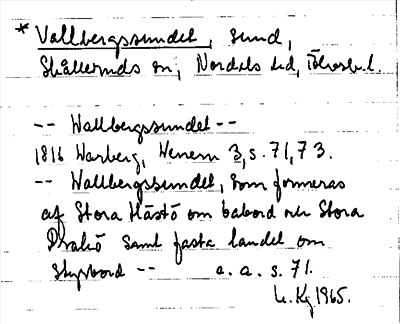 * Vallbergssundet, sund,
Skålleruds sn, Nordals hd, Älvsb. l.
-- Wallbergssundet --
1816 Warberg, Wenern 3, s. 71, 73.
-- Wallbergssundet, som formeras
af Stora Hästö om babord och Stora
Brakö samt fasta landet om
styrbord -- a. a. s. 71.
1965.